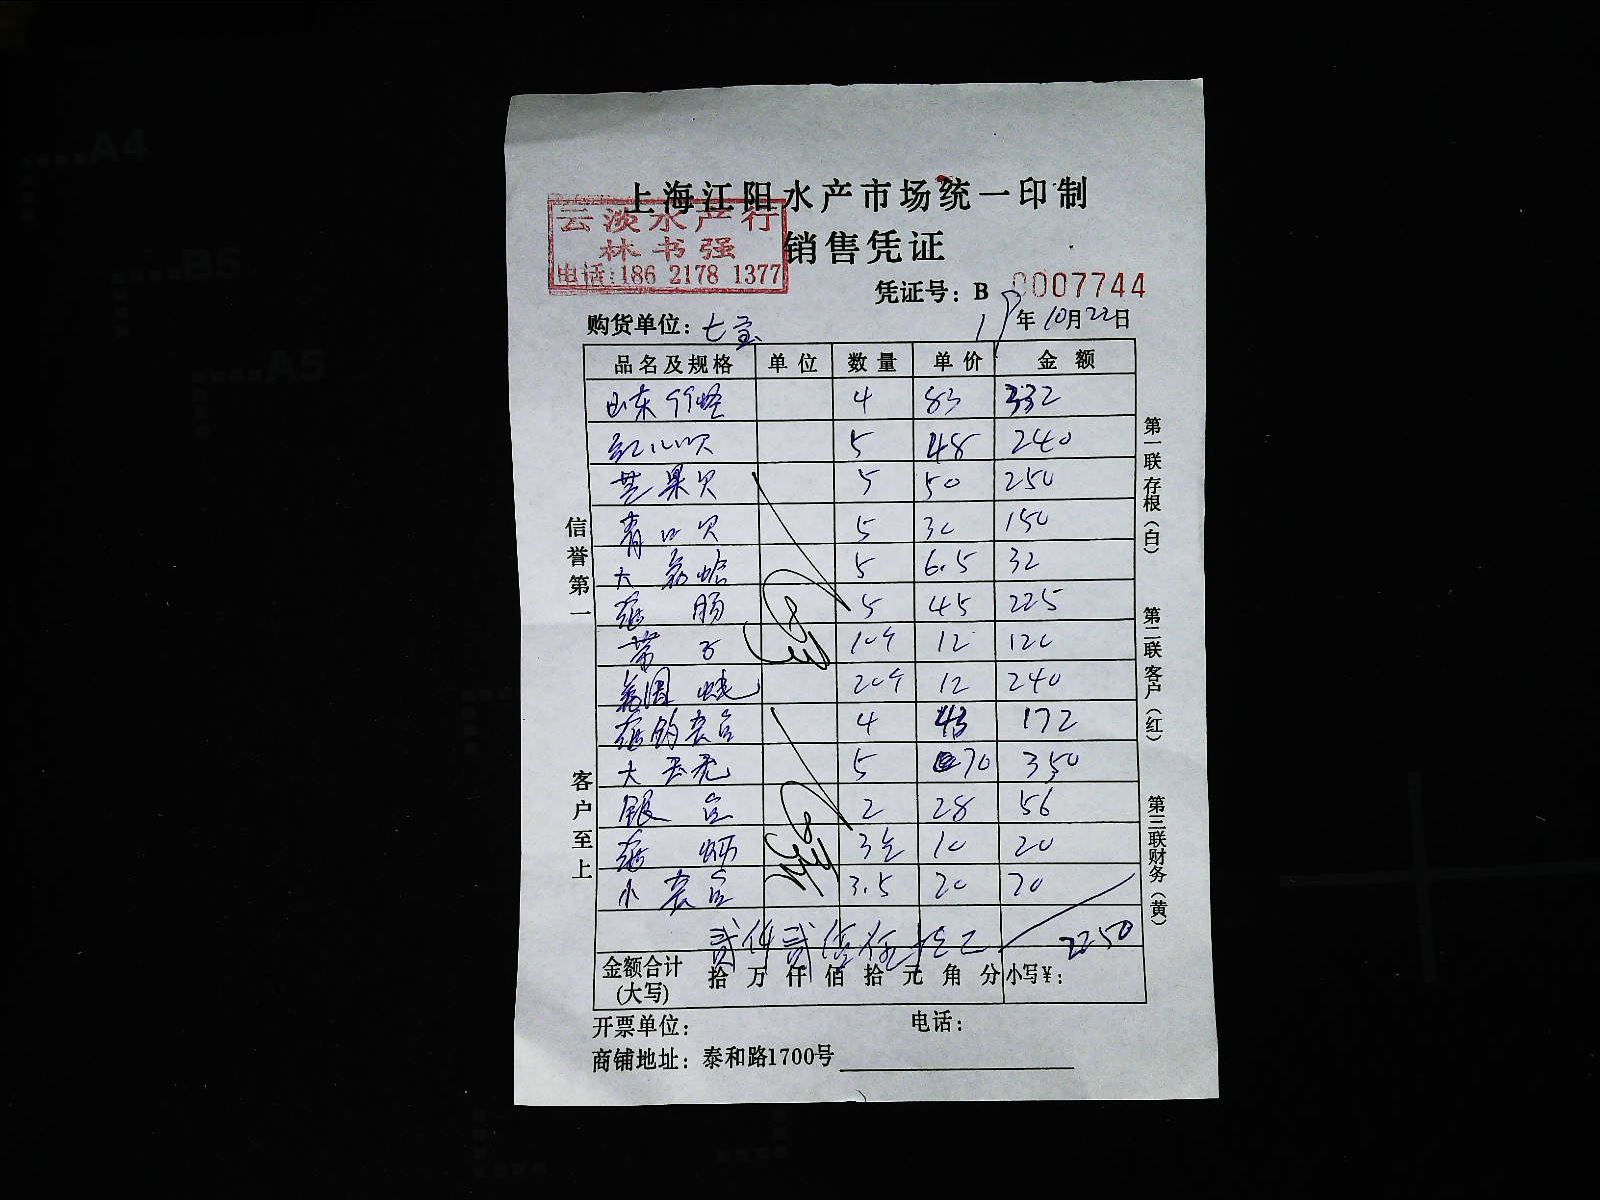 上海江阳水产市场统一印制
云淡水产行
林书强
电话:186 2178 1377
销售凭证
凭证号: B 0007744
购货单位: 七宝
19年10月22日
品名及规格 单位 数量 单价 金额
山东 4 83 332
5 48 240
芒果贝 5 50 250
青口贝 5 30 150
大 蛤 5 6.5 32
肠 5 45 225
带子 10个 12 120
20个 12 240
4 43 172
大 5 70 350
银 2 28 56
10 20
小 3.5 20 70
贰仟贰佰 2250
金额合计 (大写) 拾 万 仟 佰 拾 元 角 分 小写¥:
开票单位: 电话:
商铺地址: 泰和路1700号
信誉第一
客户至上
第一联存根(白)
第二联客户(红)
第三联财务(黄)
A4
B5
A5